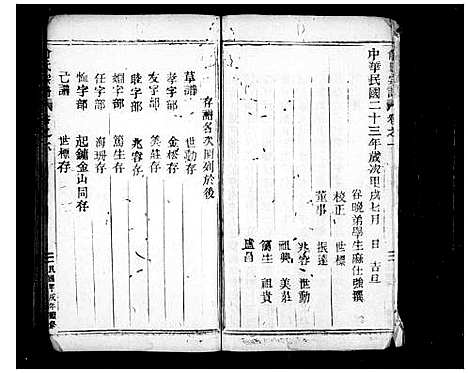 中華民國二十三年歲次甲戌七月 日 吉旦
眷晚弟學生麻仕強撰
校正 世標
董事 振遠
兆容 世勳
祖興 美莊
篤生 祖貴
盧昌
存譜名次開列於後
草譜 世勳存
孝字部 金松存
友字部 美莊存
睦字部 兆容存
婣字部 篤生存
任字部 海珊存
恤字部 起鏞金山同存
亡譜 世標存